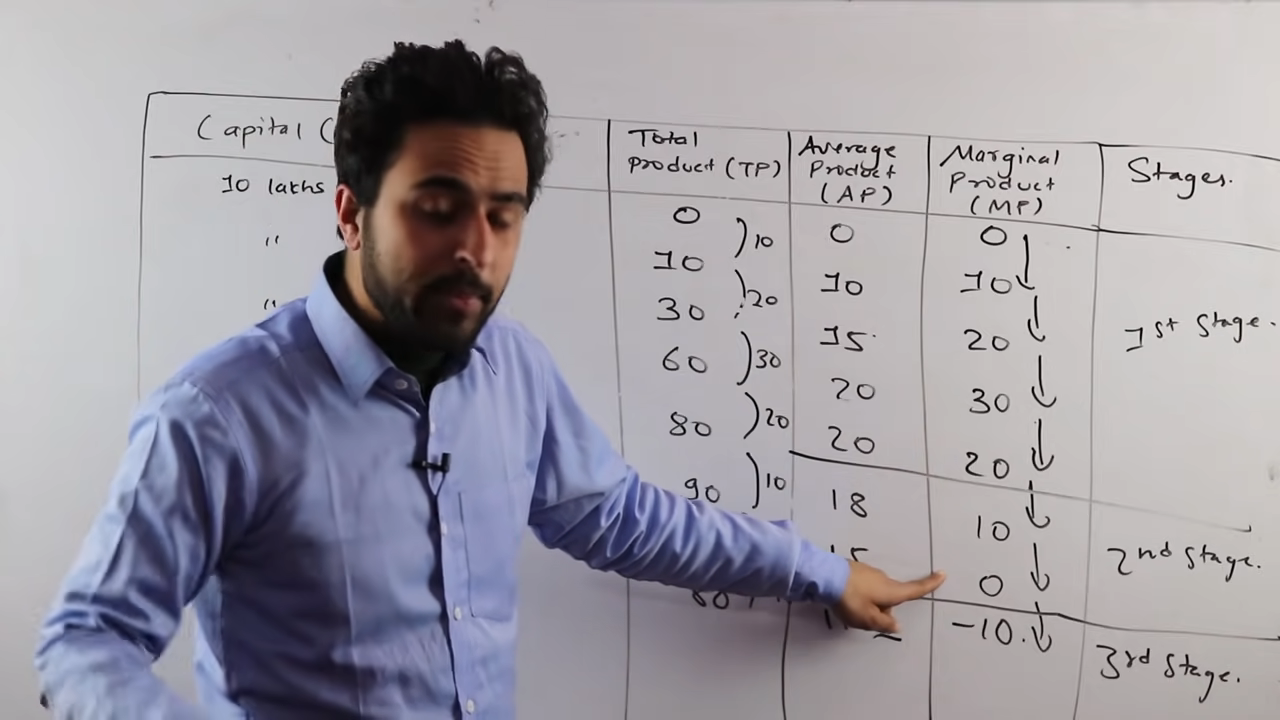 Capital (
Total
Product (TP)
Average
Product
(AP)
Marginal
Product
(MP)
Stages.
10 lakhs
0
)10
0
0
"
10
10
10
)20
"
30
15
20
1st Stage.
60
)30
20
30
80
)20
20
20
90
)10
18
10
2nd Stage.
15
0
80
-10
3rd Stage.